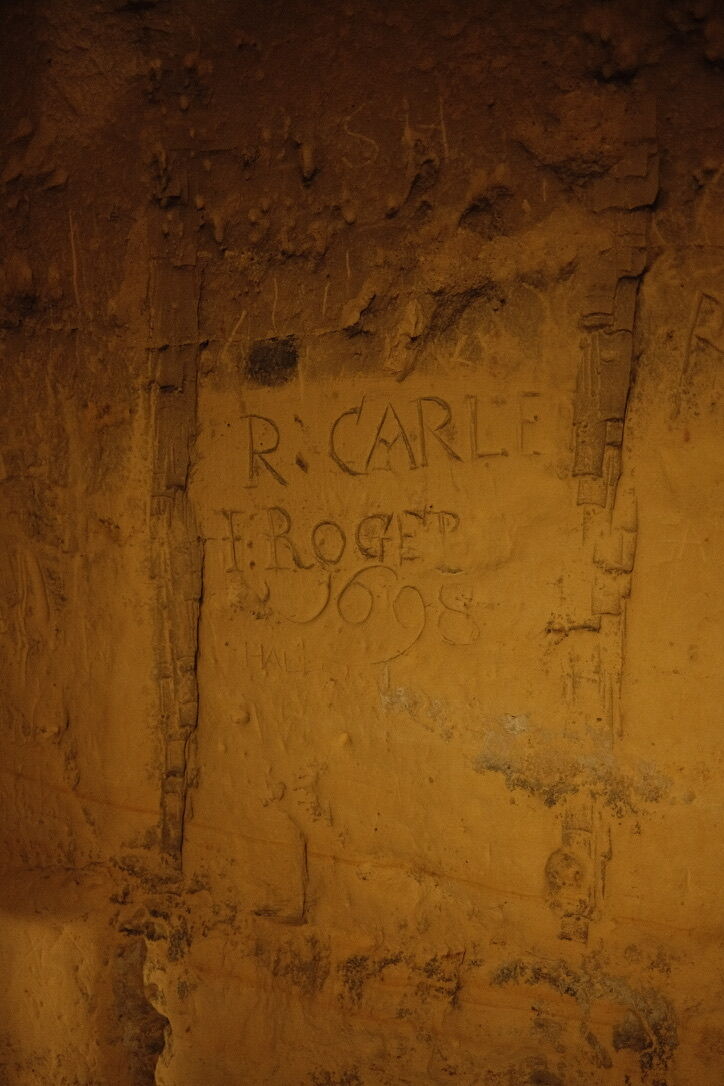 SH
R: CARLE
I: ROGER
1698
HALL